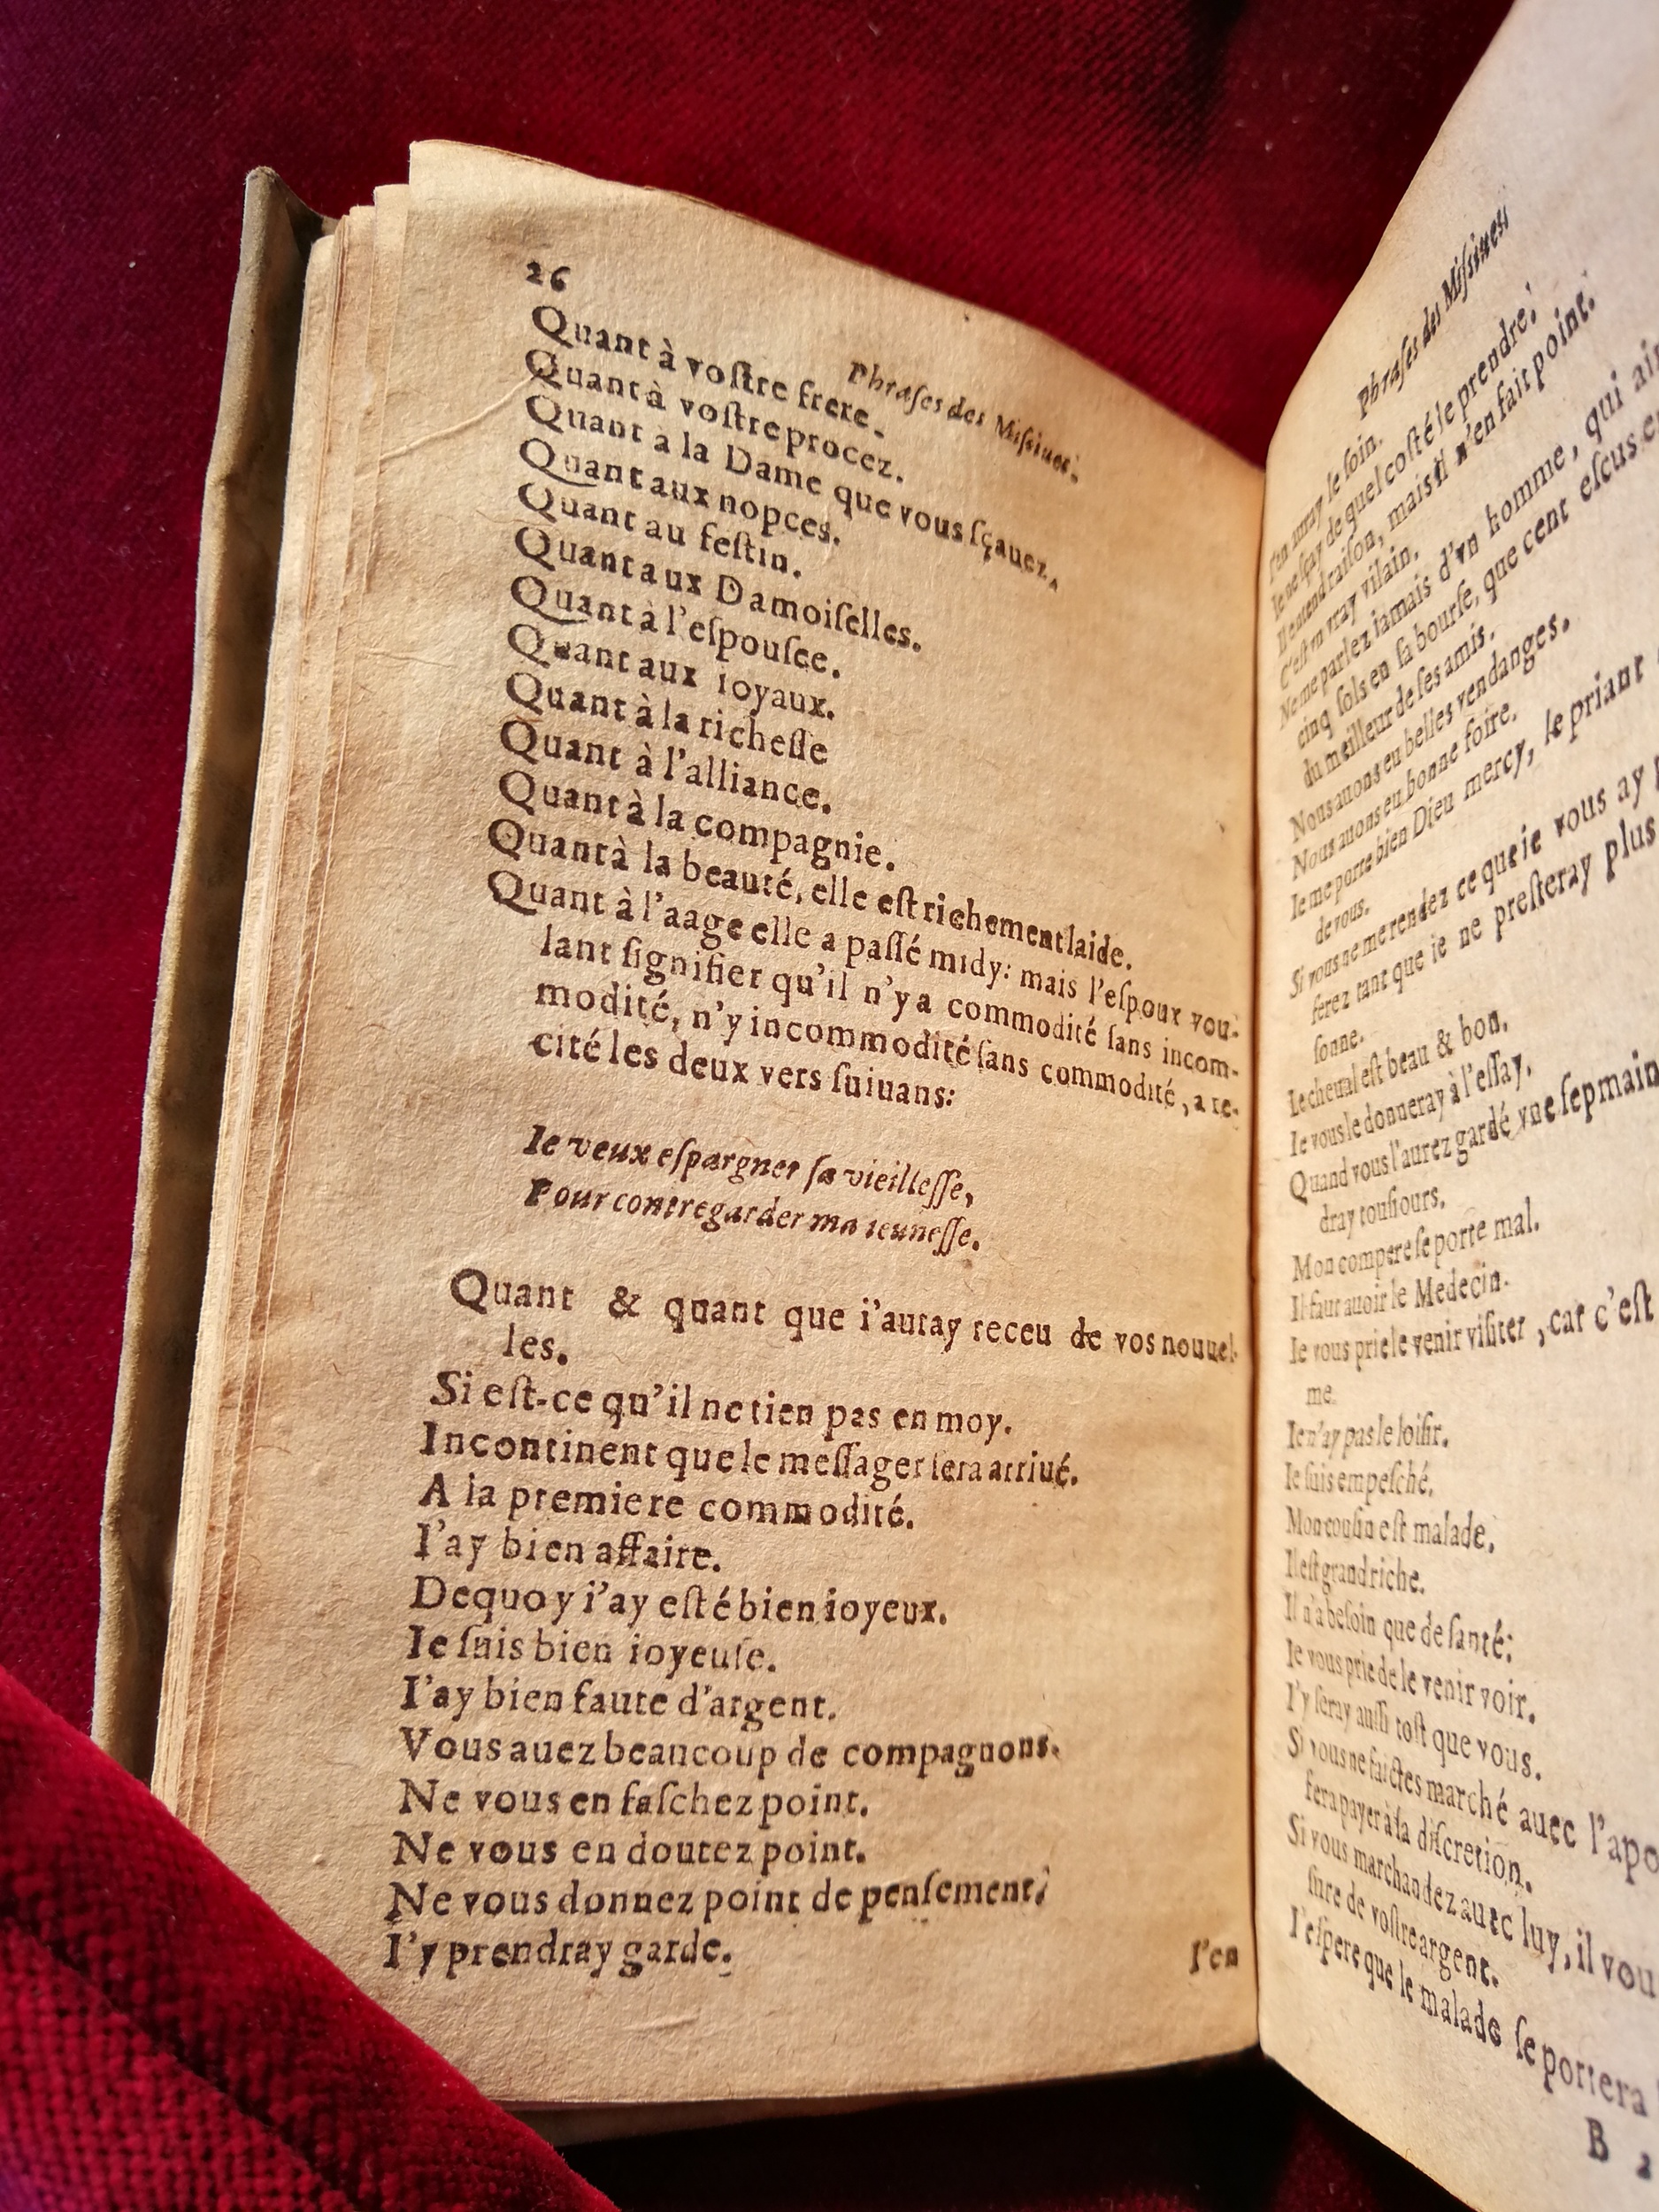 26
Phraſes des Miſsiues.
Quant à voſtre frere.
Quant à voſtre procez.
Quant a la Dame que vous ſçauez.
Quant aux nopces.
Quant au feſtin.
Quant aux Damoiſelles.
Quant à l'eſpouſee.
Quant aux ioyaux.
Quant à la richeſſe
Quant à l'alliance.
Quant à la compagnie.
Quant à la beauté, elle eſt richement laide.
Quant à l'aage elle a paſſé midy: mais l'eſpoux vou-
lant ſignifier qu'il n'y a commodité ſans incom-
modité, n'y incommodité ſans commodité, a re-
cité les deux vers ſuiuans:
Ie veux eſpargner ſa vieilleſſe,
Pour contregarder ma ieuneſſe.
Quant & quant que i'auray receu de vos nouuel-
les.
Si eſt-ce qu'il ne tien pas en moy.
Incontinent que le meſſager ſera arriué.
A la premiere commodité.
I'ay bien affaire.
Dequoy i'ay eſté bien ioyeux.
Ie ſuis bien ioyeuſe.
I'ay bien faute d'argent.
Vous auez beaucoup de compagnons.
Ne vous en faſchez point.
Ne vous en doutez point.
Ne vous donnez point de penſement,
I'y prendray garde.
I'en
Phraſes des Miſsiues
I'en auray le ſoin.
Ie ne ſçay de quel coſté le prendre.
Il entend raiſon, mais il n'en fait point.
C'eſt vn vray vilain.
Ne me parlez iamais d'vn homme, qui
cinq ſols en ſa bourſe, que cent eſcus
du meilleur de ſes amis.
Nous auons eu belles vendanges.
Nous auons eu bonne foire.
Ie me porte bien Dieu mercy, le priant
de vous.
Si vous ne me rendez ce que ie vous ay
ferez tant que ie ne preſteray plus
ſonne.
Le cheual eſt beau & bon.
Ie vous le donneray à l'eſſay.
Quand vous l'aurez gardé vne ſepmain
dray touſiours.
Mon compere ſe porte mal.
Il faut auoir le Medecin.
Ie vous prie le venir viſiter, car c'eſt
me.
Ie n'ay pas le loiſir.
Ie ſuis empeſché.
Mon couſin eſt malade.
Il eſt grand riche.
Il n'a beſoin que de ſanté:
Ie vous prie de le venir voir.
I'y ſeray auſſi toſt que vous.
Si vous ne faictes marché auec l'apo
fera payer à ſa diſcretion.
Si vous marchandez auec luy, il vou
ſure de voſtre argent.
I'eſpere que le malade ſe portera
B 2